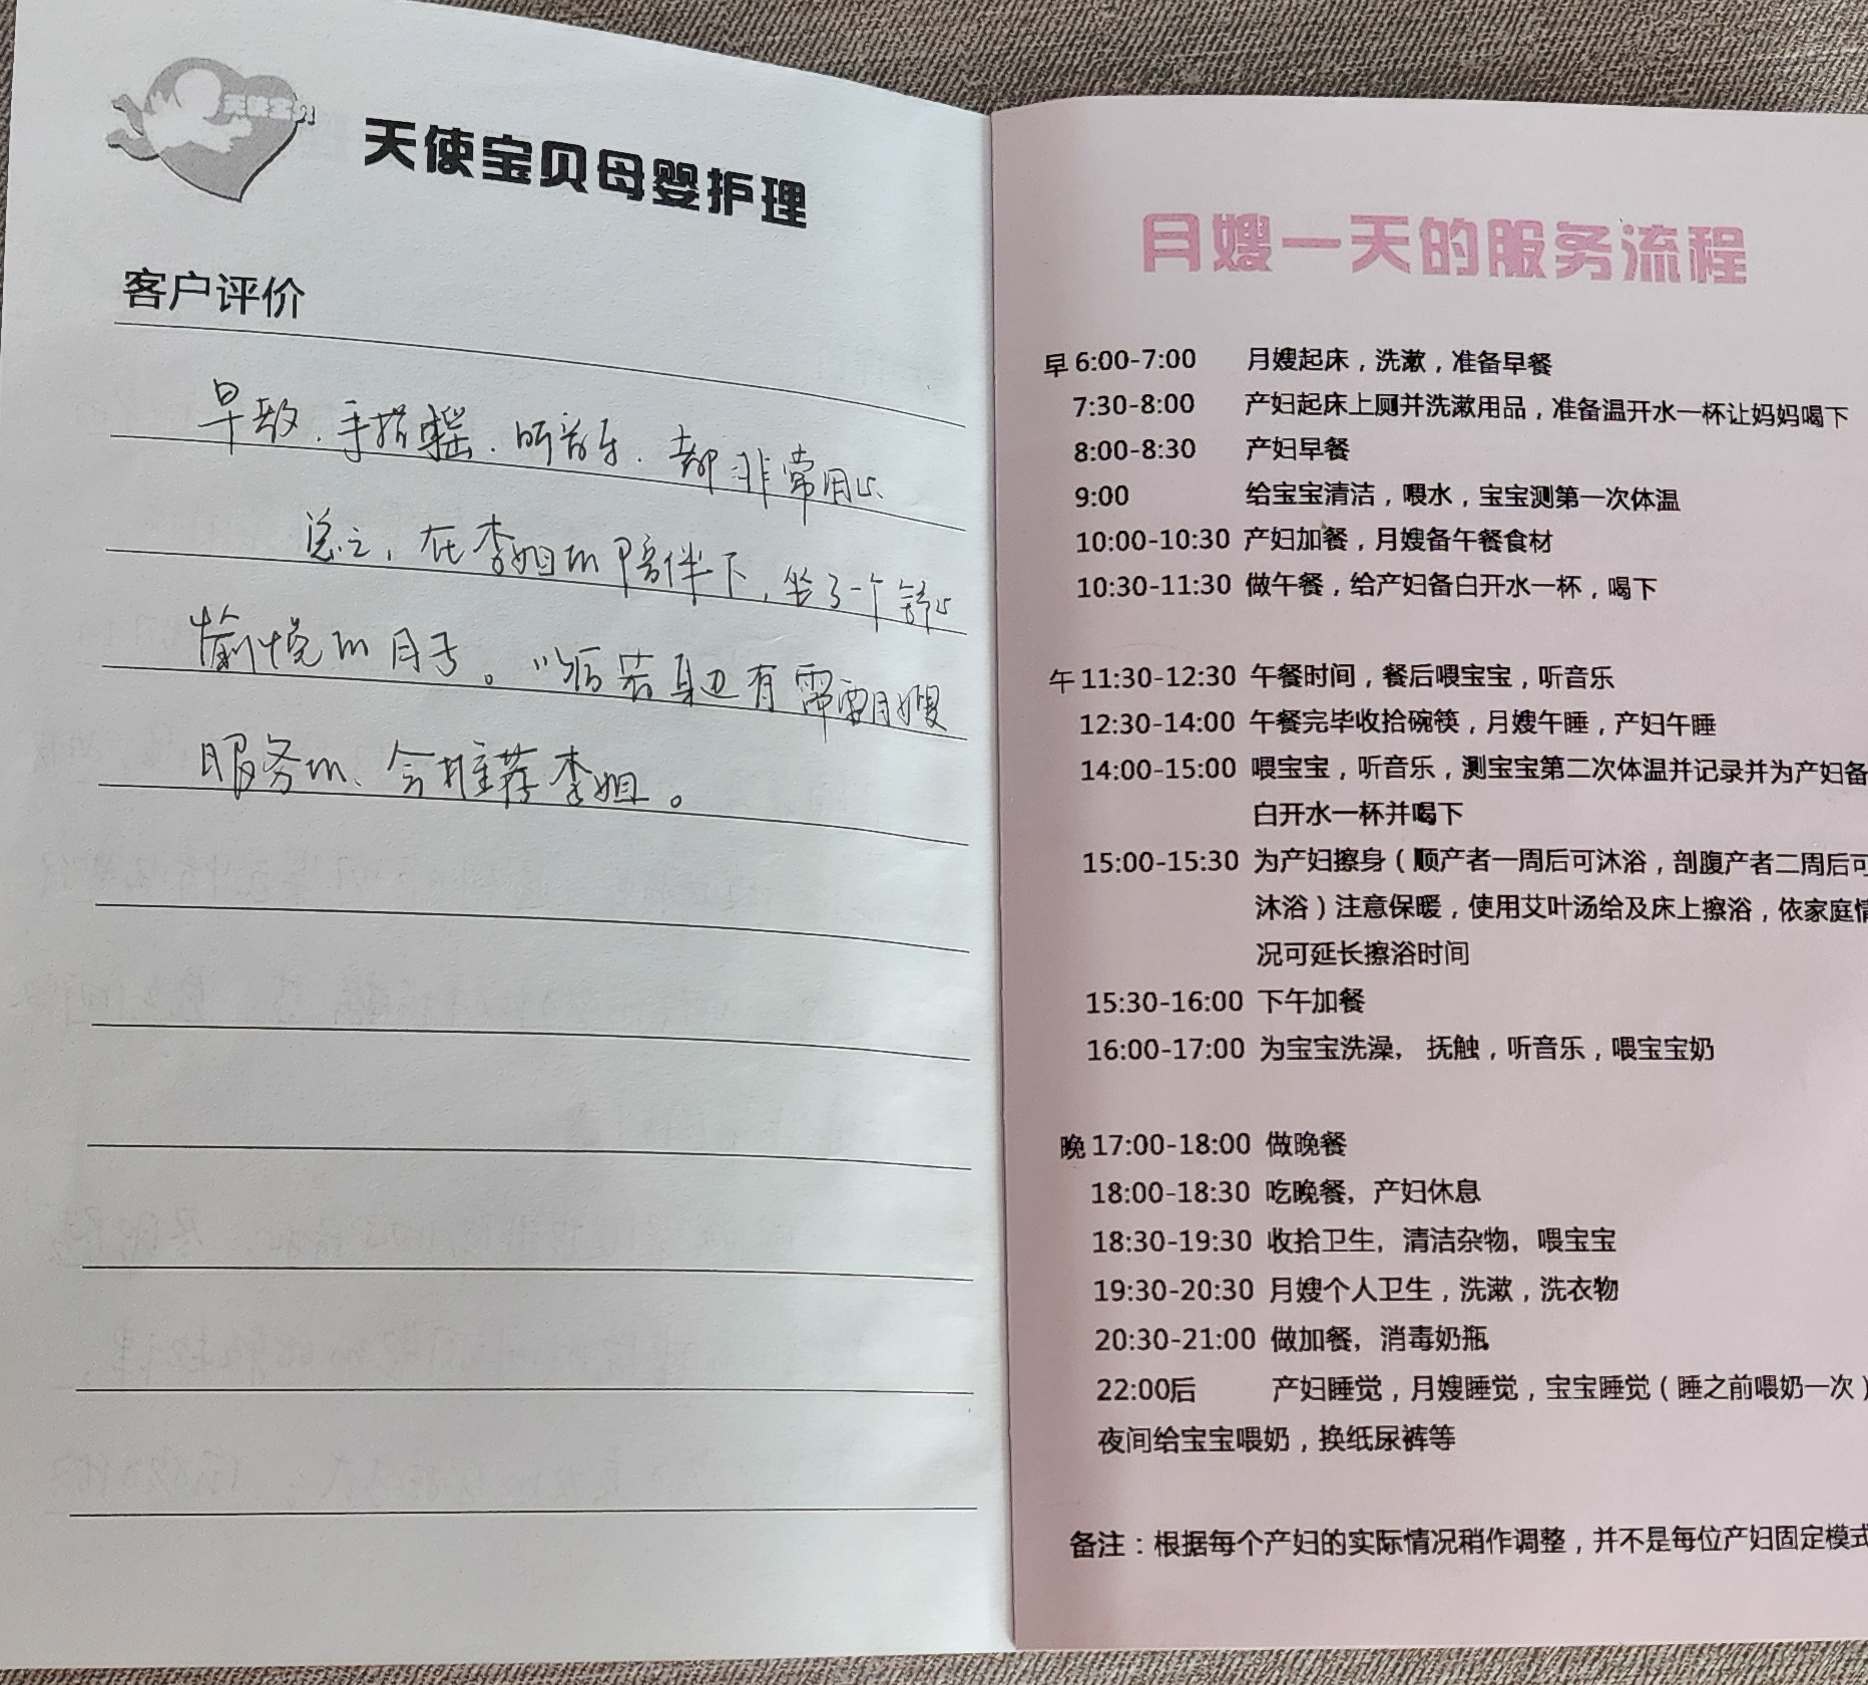 天使宝贝
天使宝贝母婴护理
客户评价
早教、手摇摇、听音乐、都非常用心
总之，在李姐的陪伴下，坐了一个舒心
愉悦的月子。以后若身边有需要月嫂
服务的、会推荐李姐。
月嫂一天的服务流程
早 6:00-7:00 月嫂起床，洗漱，准备早餐
7:30-8:00 产妇起床上厕并洗漱用品，准备温开水一杯让妈妈喝下
8:00-8:30 产妇早餐
9:00 给宝宝清洁，喂水，宝宝测第一次体温
10:00-10:30 产妇加餐，月嫂备午餐食材
10:30-11:30 做午餐，给产妇备白开水一杯，喝下
午 11:30-12:30 午餐时间，餐后喂宝宝，听音乐
12:30-14:00 午餐完毕收拾碗筷，月嫂午睡，产妇午睡
14:00-15:00 喂宝宝，听音乐，测宝宝第二次体温并记录并为产妇备
白开水一杯并喝下
15:00-15:30 为产妇擦身（顺产者一周后可沐浴，剖腹产者二周后可
沐浴）注意保暖，使用艾叶汤给及床上擦浴，依家庭情
况可延长擦浴时间
15:30-16:00 下午加餐
16:00-17:00 为宝宝洗澡， 抚触，听音乐，喂宝宝奶
晚 17:00-18:00 做晚餐
18:00-18:30 吃晚餐，产妇休息
18:30-19:30 收拾卫生，清洁杂物，喂宝宝
19:30-20:30 月嫂个人卫生，洗漱，洗衣物
20:30-21:00 做加餐，消毒奶瓶
22:00后 产妇睡觉，月嫂睡觉，宝宝睡觉（睡之前喂奶一次）
夜间给宝宝喂奶，换纸尿裤等
备注：根据每个产妇的实际情况稍作调整，并不是每位产妇固定模式